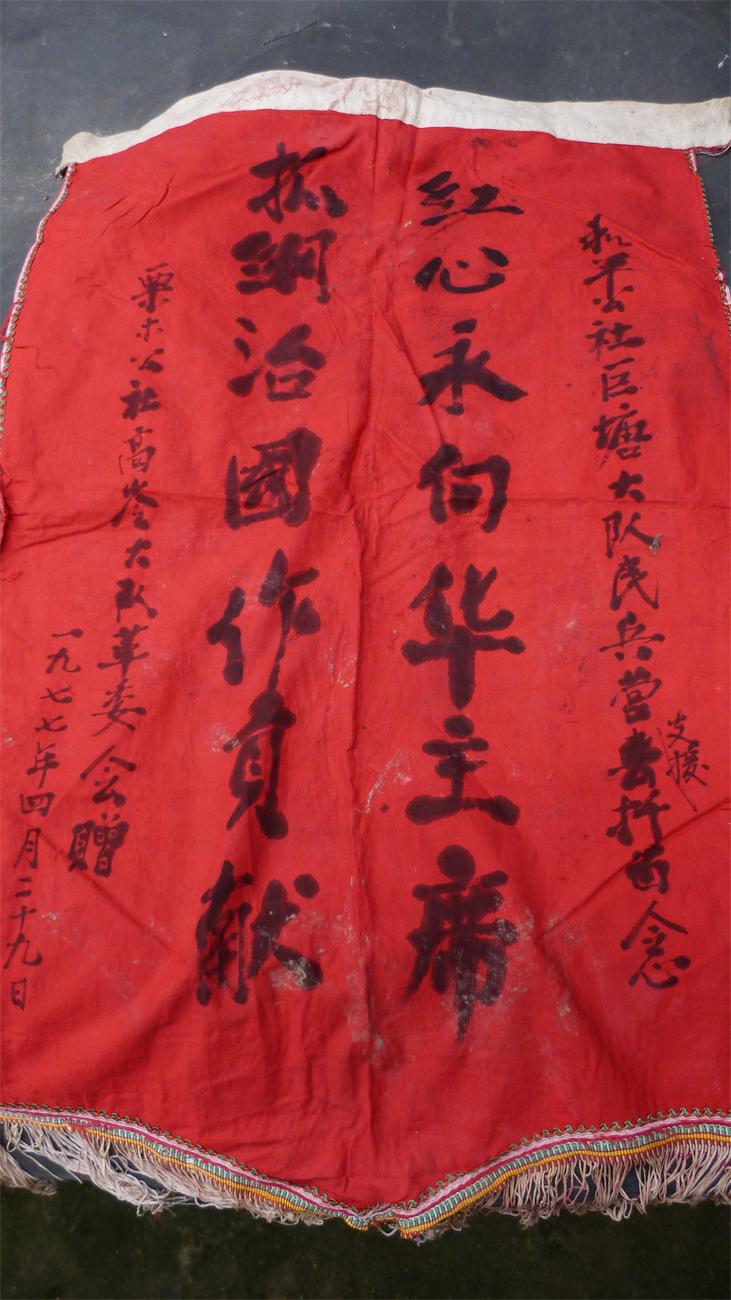 和平公社巨塘大队民兵营支援春留念
红心永向华主席
抓纲治國作貢献
栗木公社高岺大队革委会赠
一九七七年四月二十九日